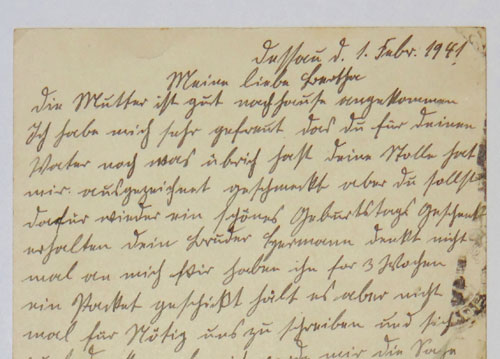 Dessau d. 1. Febr. 1941
Meine liebe Bertha
die Mutter ist gut nachhause angekommen
Ich habe mich sehr gefreut das du für deinen
Vater noch was übrich hast deine Stolle hat
mir ausgezeichnet geschmeckt aber du sollst
dafür wieder ein schönes Geburtstags Geschenk
erhalten dein Bruder Hermann denkt nicht
mal an mich Wir haben ihn for 3 Wochen
ein Packet geschickt hält es aber nicht
mal für Nötig uns zu schreiben und sich
mir die Sache